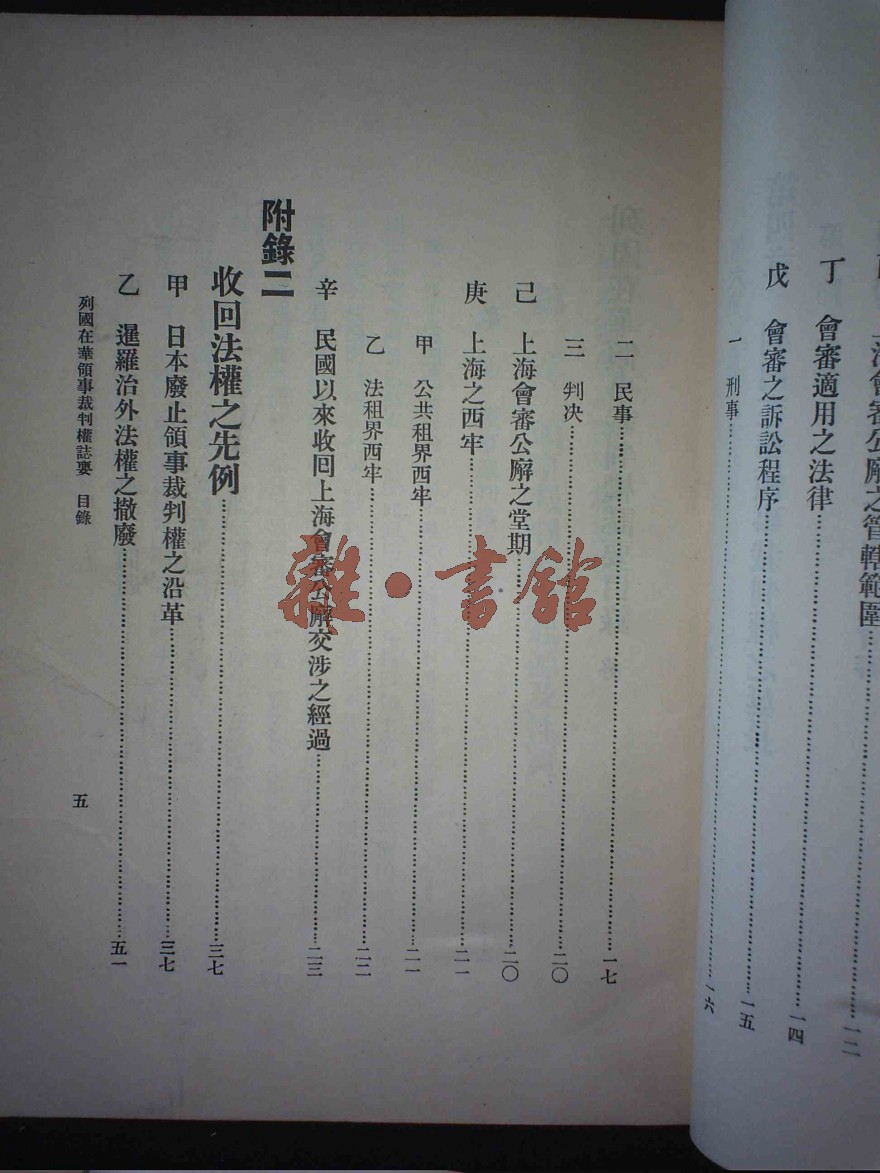 上海會審公廨之管轄範圍……一二
丁　會審適用之法律……一四
戊　會審之訴訟程序……一五
一　刑事……一六
二　民事……一七
三　判决……二〇
己　上海會審公廨之堂期……二〇
庚　上海之西牢……二一
甲　公共租界西牢……二一
乙　法租界西牢……二二
辛　民國以來收回上海會審公廨交涉之經過……二三
附錄二
收回法權之先例……三七
甲　日本廢止領事裁判權之沿革……三七
乙　暹羅治外法權之撤廢……五一
列國在華領事裁判權誌要　目錄
五
雜·書館